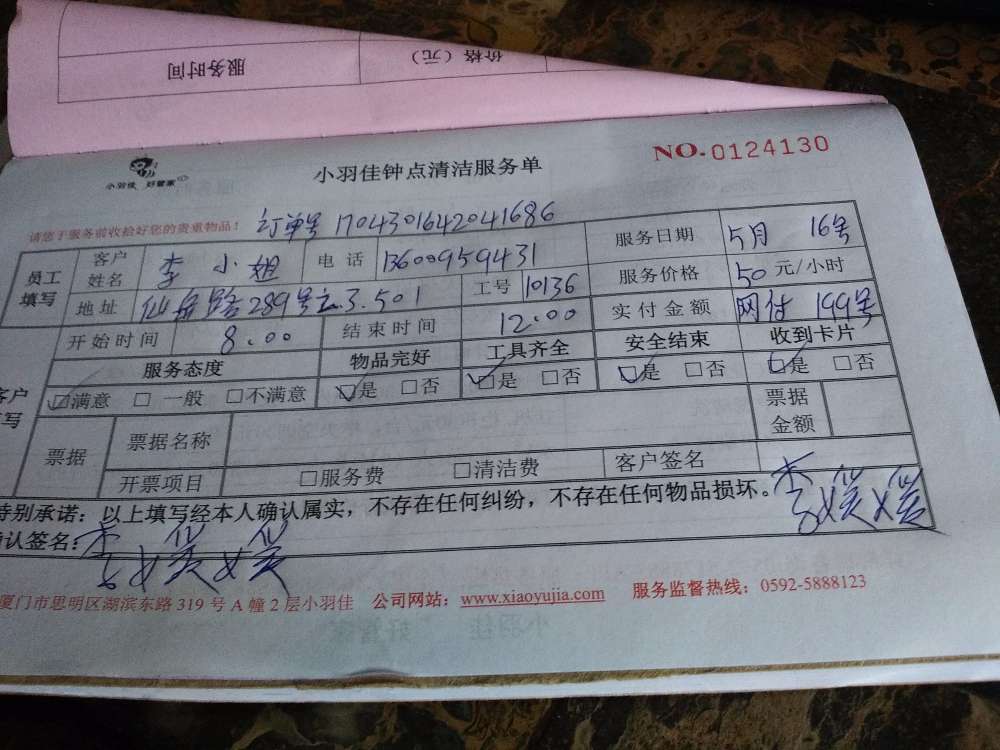 服务时间 价格（元）
小羽佳 好管家
小羽佳钟点清洁服务单
NO.0124130
请您于服务前收拾好您的贵重物品！ 订单号 1704301642041686
员工填写 客户姓名 李小姐 电话 13600959431 服务日期 5月 16号
地址 仙岳路289号之3.501 工号 10136 服务价格 50元/小时
开始时间 8.00 结束时间 12.00 实付金额 网付 199号
服务态度 物品完好 工具齐全 安全结束 收到卡片
☑满意 □一般 □不满意 ☑是 □否 ☑是 □否 ☑是 □否 ☑是 □否
票据 票据名称 票据金额
开票项目 □服务费 □清洁费 客户签名
特别承诺：以上填写经本人确认属实，不存在任何纠纷，不存在任何物品损坏。
确认签名：
厦门市思明区湖滨东路 319 号 A 幢 2 层小羽佳 公司网站：www.xiaoyujia.com 服务监督热线：0592-5888123